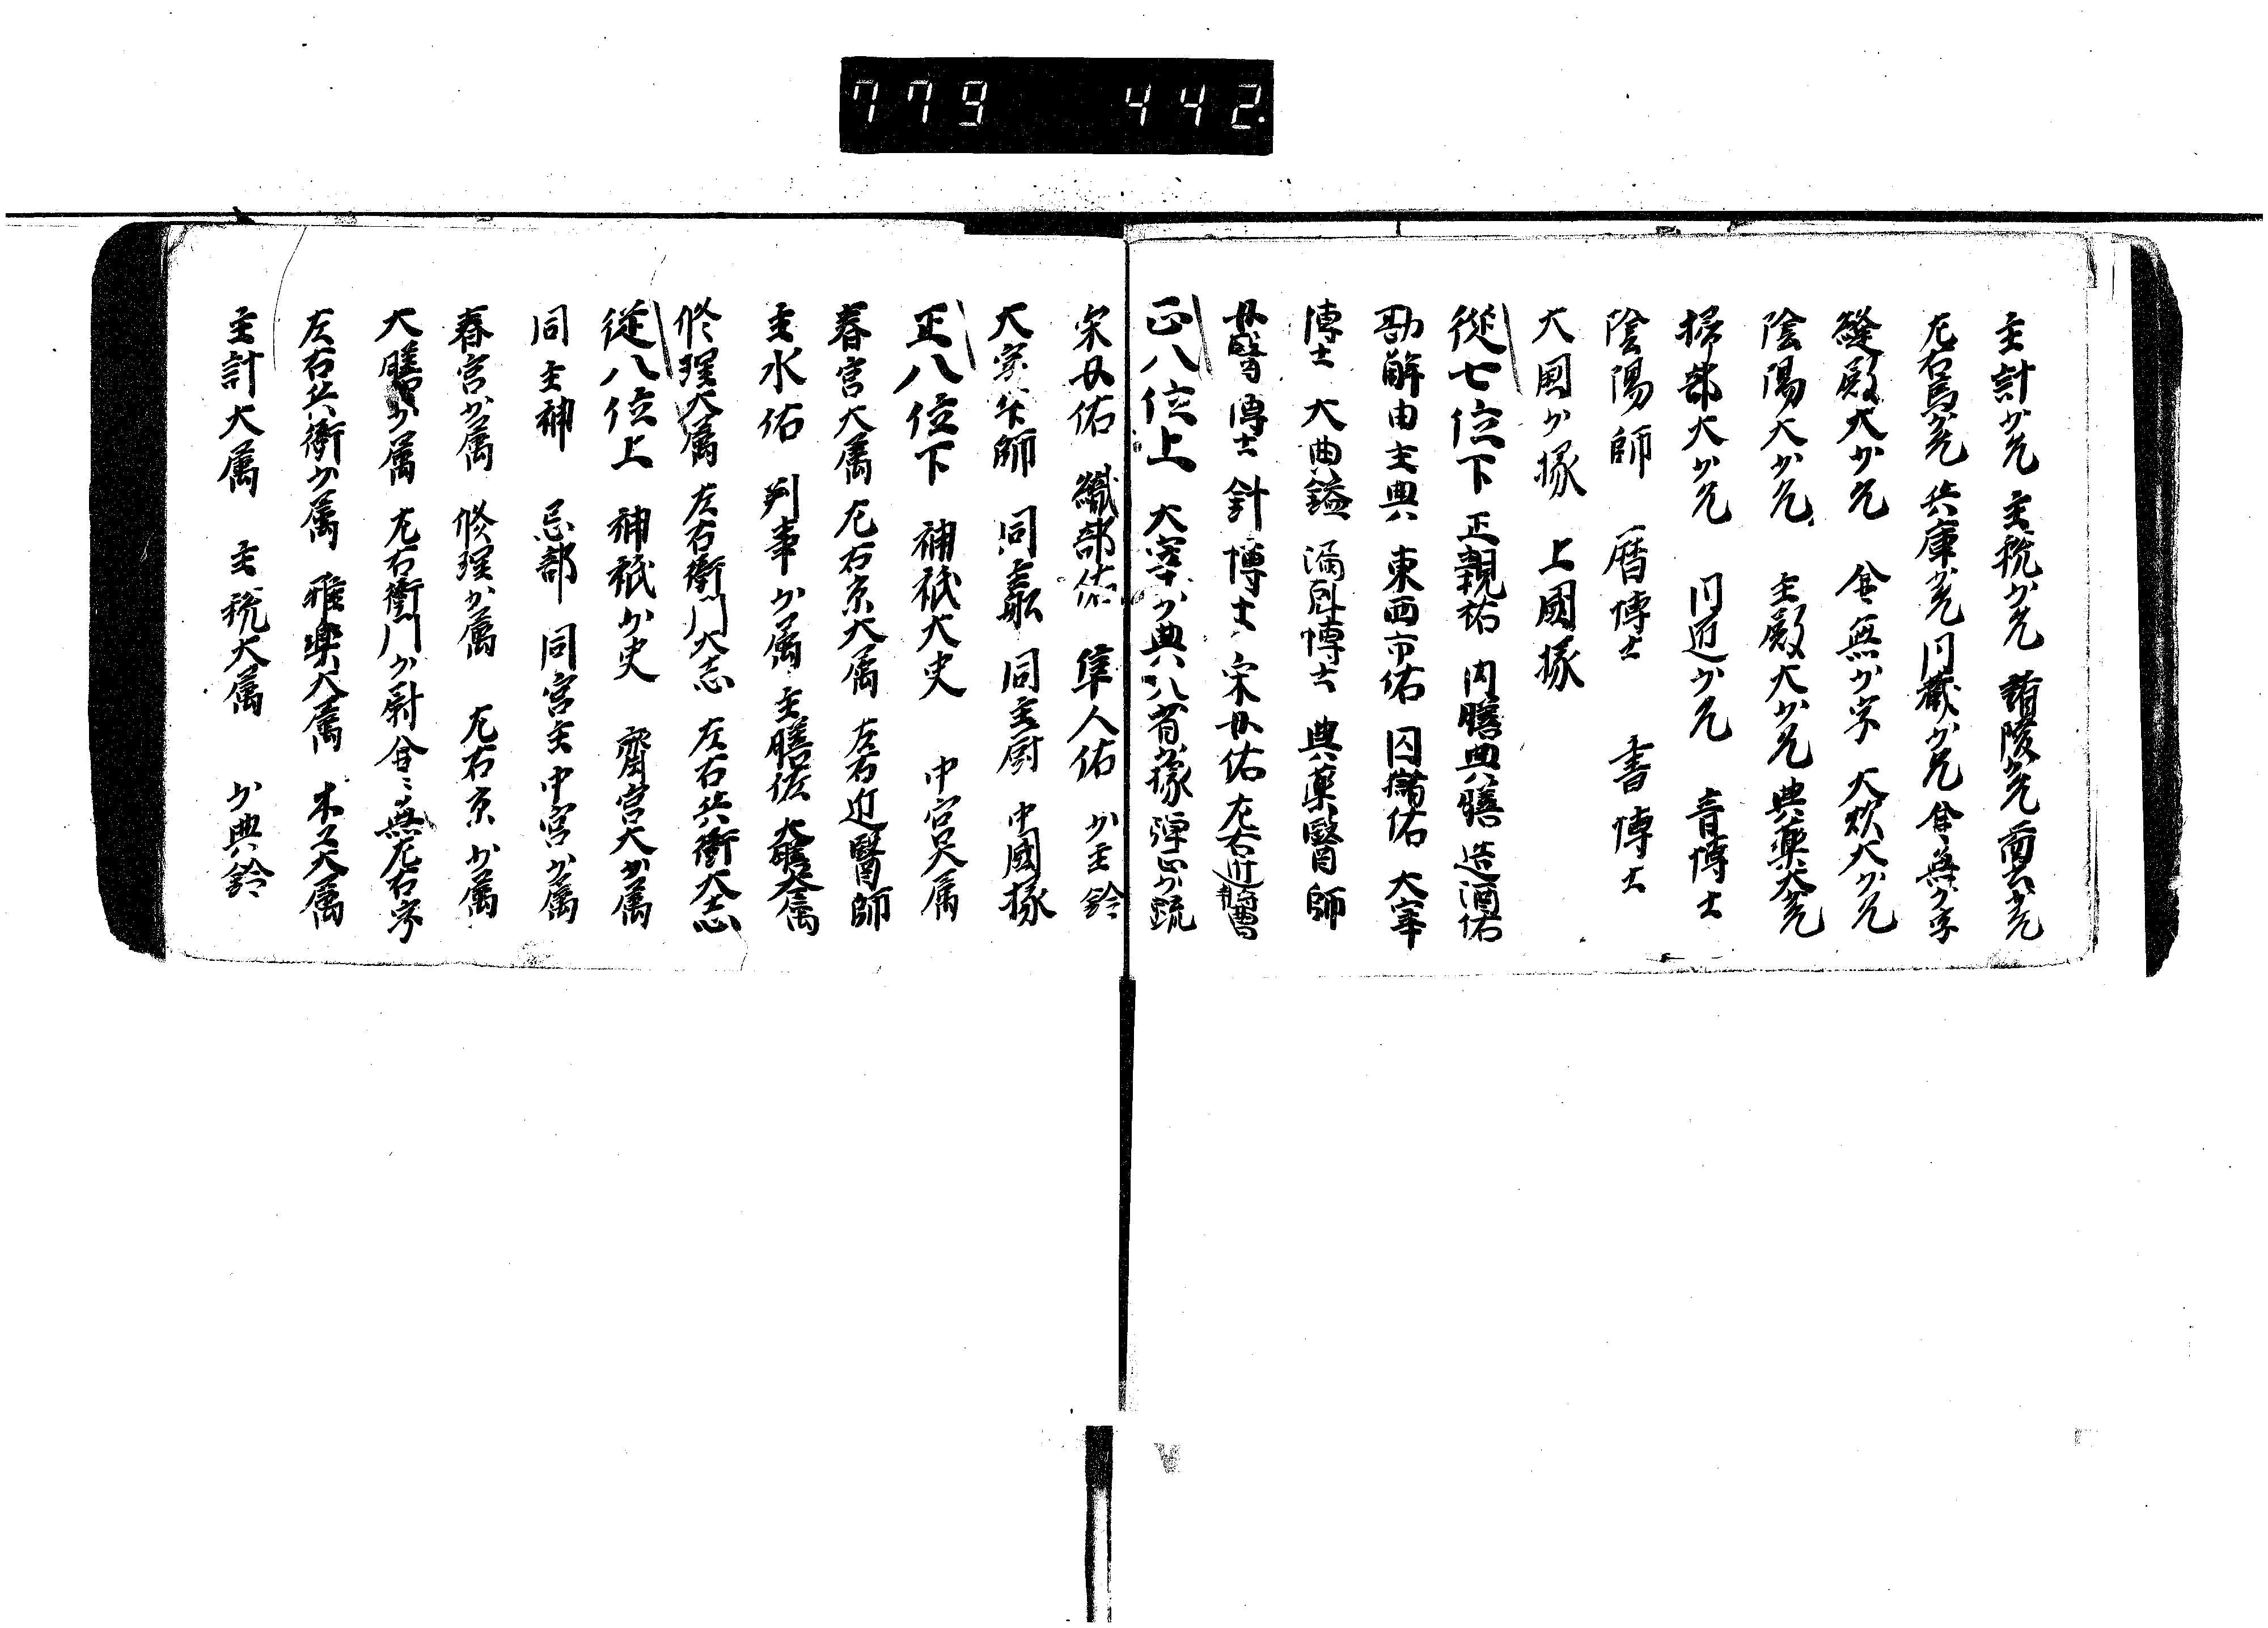 779 442
主計少允 主税少允 諸陵少允 少允
左右馬少允 兵庫少允 内蔵少允 無少字
縫殿大少允 無少字 大炊大少允
陰陽大少允 主殿大少允 典薬大少允
掃部大少允 少允 音博士
陰陽師 暦博士 書博士
大國少掾 上國掾
従七位下 正親祐 内膳典膳 造酒佑
勘解由主典 東西市佑 囚獄佑 大宰
博士 大典鎰 漏剋博士 典薬醫師
女醫博士 針博士 采女佑 左右近将曹
正八位上 大宰少典 八省少掾 弾正少疏
采女佑 織部佑 隼人佑 少主鈴
大宰師 同主船 同主厨 中國掾
正八位下 神祇大史 中宮大属
春宮大属 左右京大属 左右近醫師
主水佑 判事少属 主膳佐 大膳大属
修理大属 左右衛門大志 左右兵衛大志
従八位上 神祇少史 齋宮大少属
同主神 忌部 同宮主 中宮少属
春宮少属 修理少属 左右京少属
大膳少属 左右衛門少尉 無左右字
左右兵衛少属 雅楽大属 木工大属
主計大属 主税大属 少典鈴